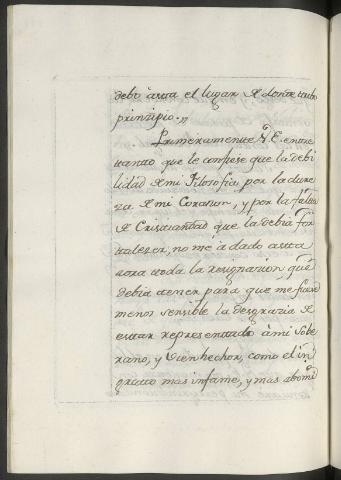 debo àrta el lugar de donde tubo
prinzipio.
Primeramente V.E. entre
tantto que le confiese que la debi
lidad de mi Filosofia, por la dure
za de mi Corazon, y por la falta
de Cristiandad que la debia for
talezer, no me à dado asta
aora ttoda la resignazion, que
debia atener para que me fuese
menos sensible la desgrazia de
esttar representtado à mi Sobe
rano, y Vienhechor, como el in
gratto mas infame, y mas abomi